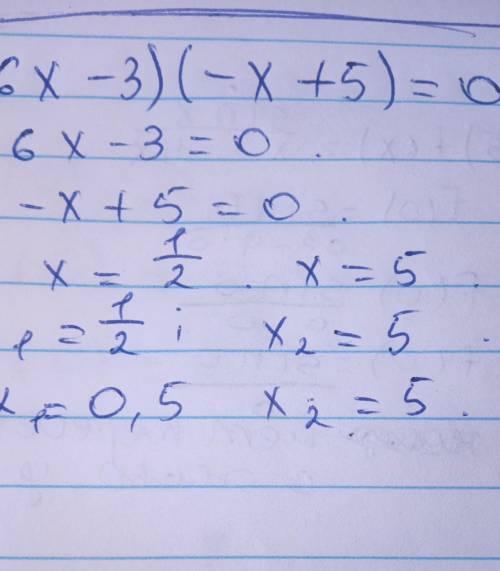 6x - 3)(-x + 5) = 0
6x - 3 = 0.
-x + 5 = 0.
x = 1/2. x = 5.
₁ = 1/2; x₂ = 5.
x₁ = 0,5 x₂ = 5.